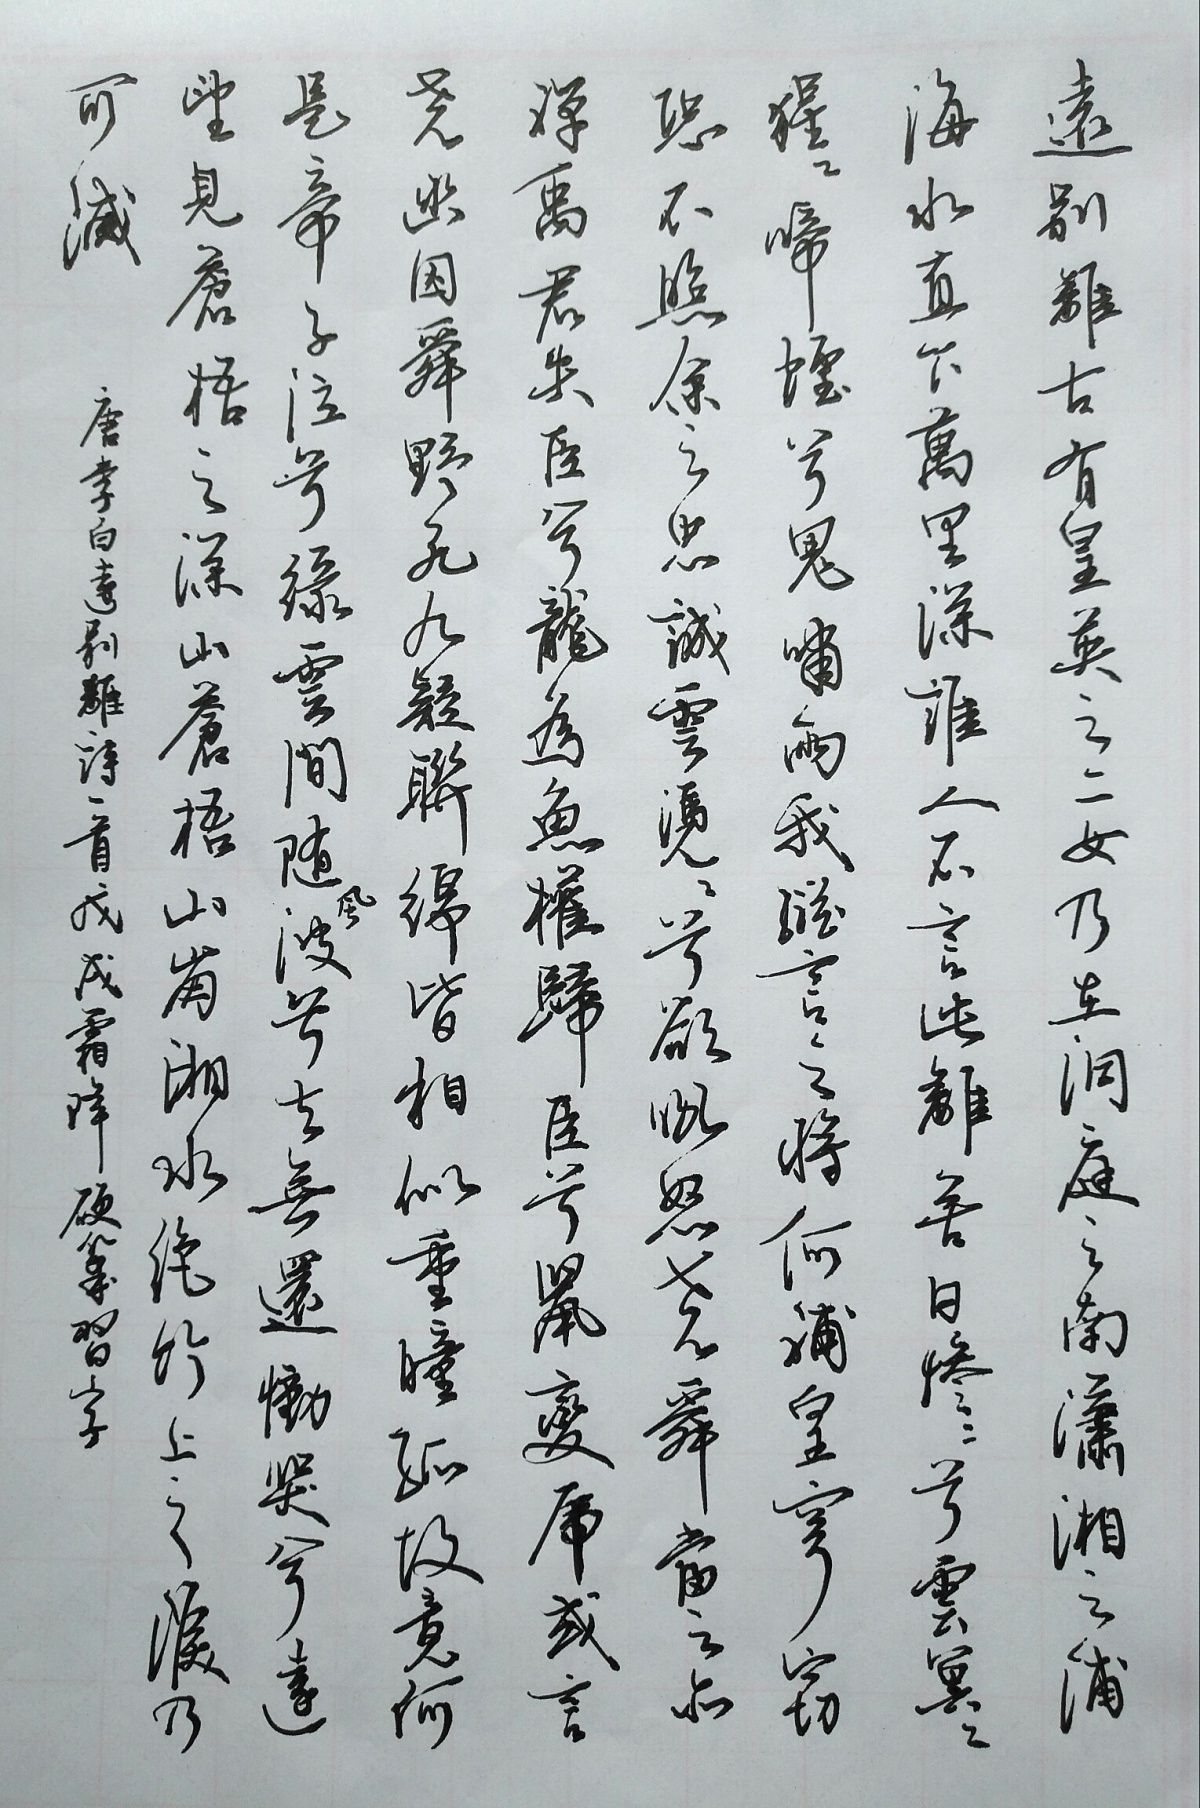 遠別離古有皇英之二女乃在洞庭之南瀟湘之浦
海水直下萬里深誰人不言此離苦日慘〻兮雲冥〻
猩〻啼煙兮鬼嘯雨我縱言之將何補皇穹竊
恐不照余之忠誠雲憑〻兮欲吼怒堯舜當之亦
禪禹君失臣兮龍為魚權歸臣兮鼠變虎或言
堯幽囚舜野死九疑聯綿皆相似重瞳孤墳竟何
是帝子泣兮綠雲間随風波兮去無還慟哭兮遠
望見蒼梧之深山蒼梧山崩湘水絕竹上之淚乃
可滅
唐李白遠別離詩一首戊戌霜降 硬筆習字